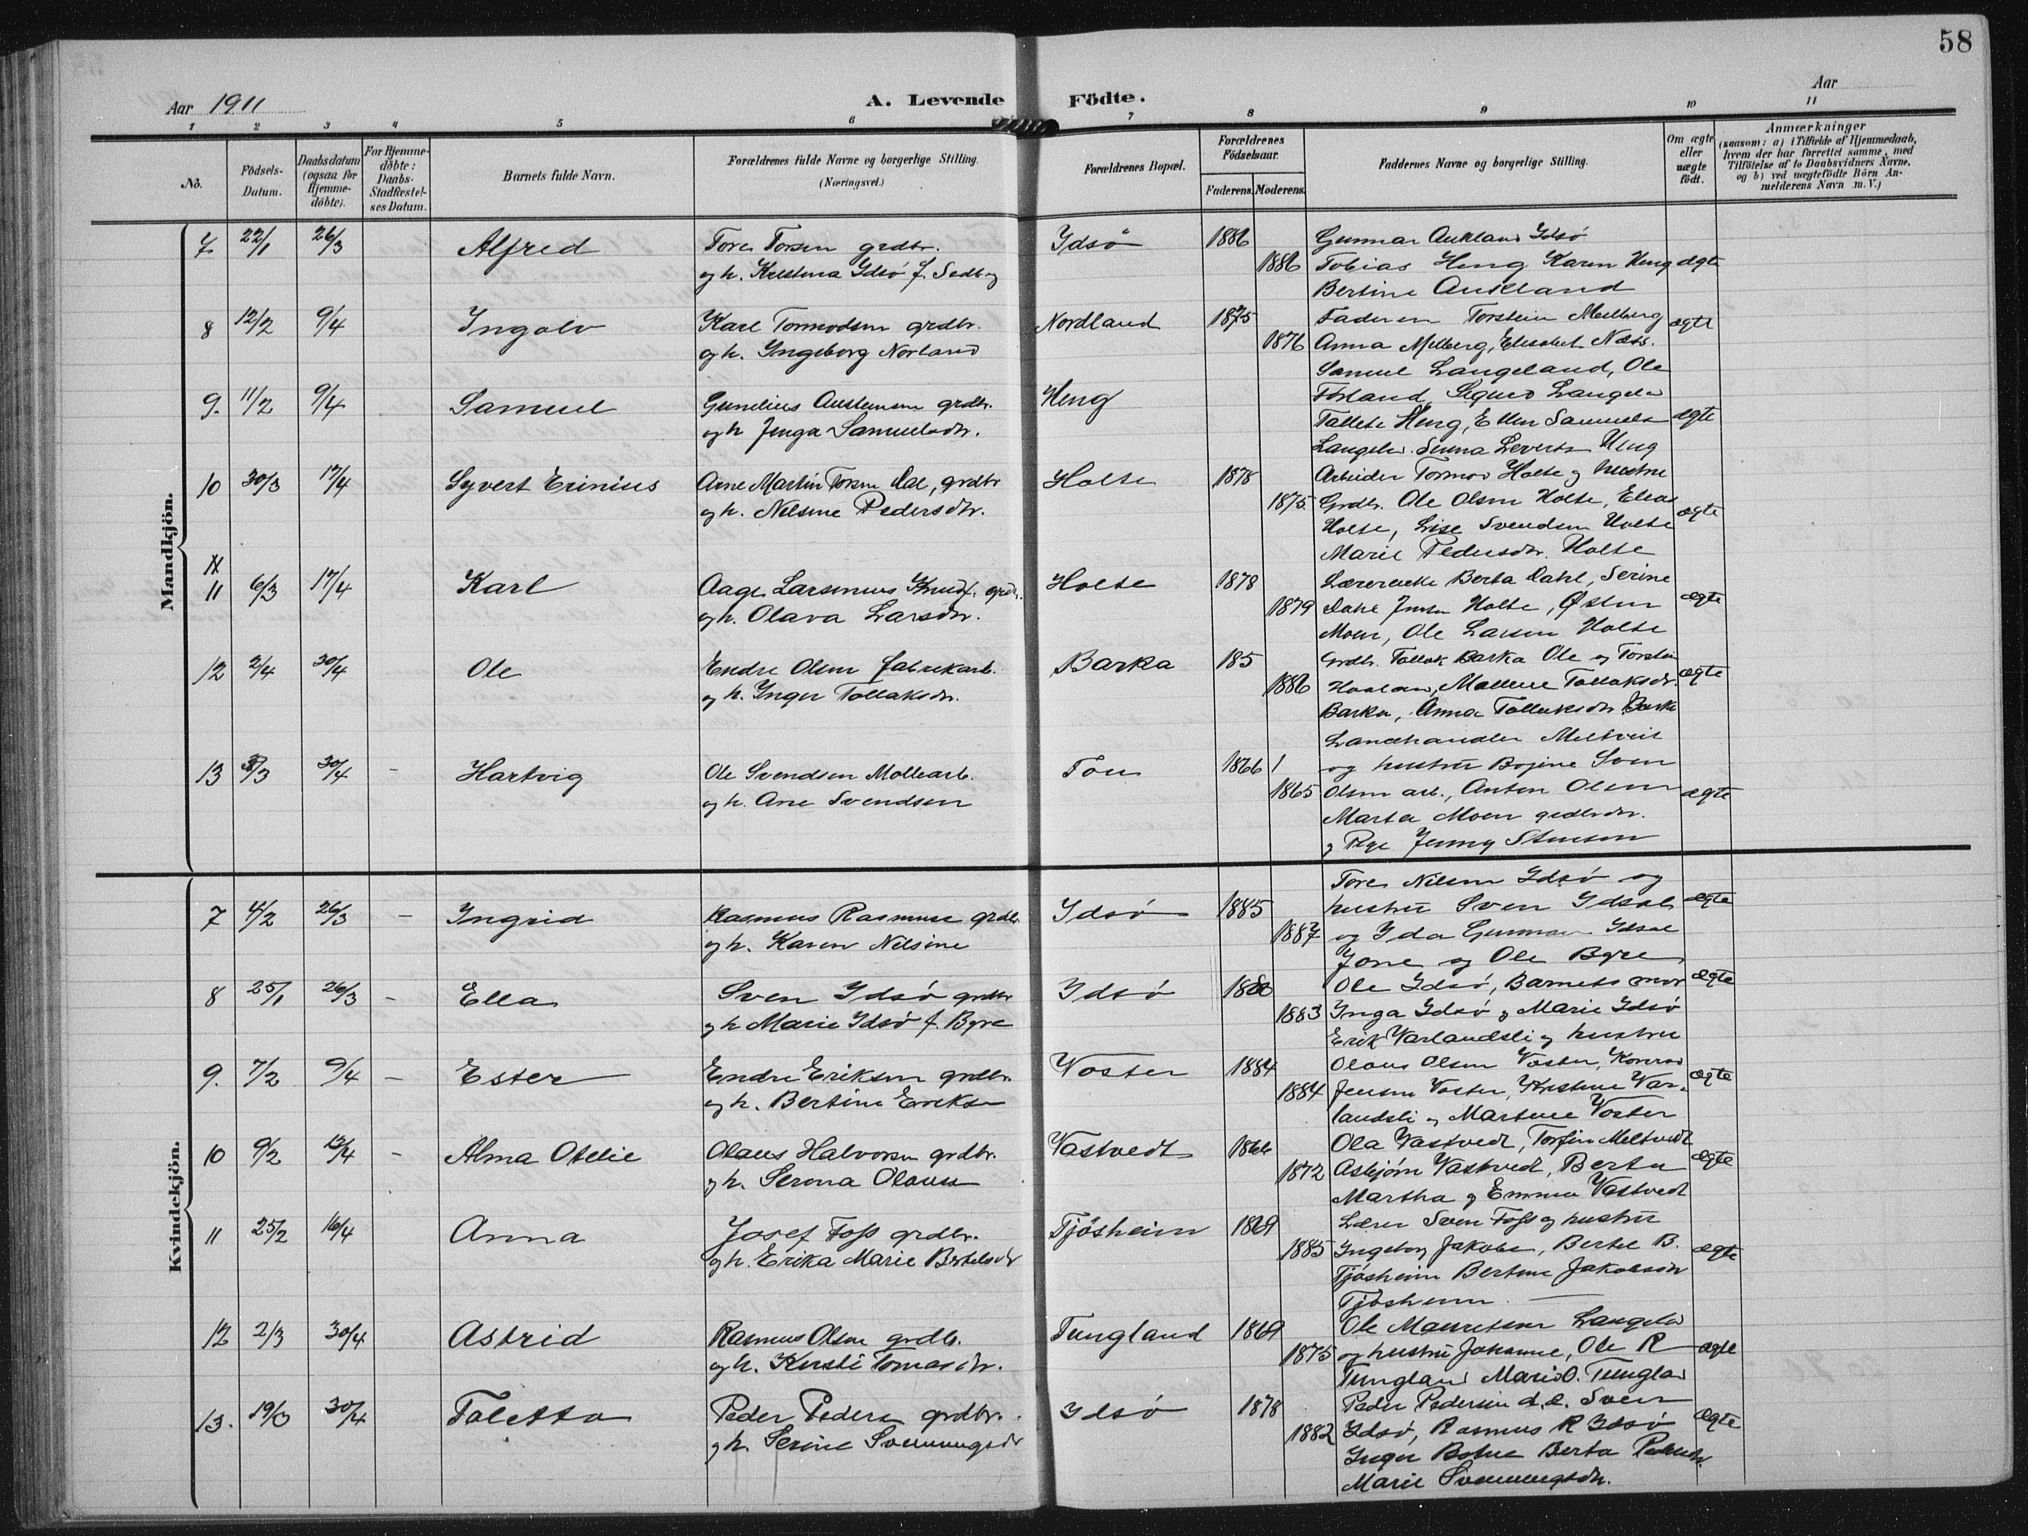 58
Aar 1911
A. Levende Födte.
Aar
1 2 3 4 5 6 7 8 9 10 11
No.
Födsels-Datum.
Daabsdatum (ogsaa for Hjemmedöbte).
For Hjemmedöbte: Daabs-Stadfestelses Datum.
Barnets fulde Navn.
Forældrenes fulde Navne og borgerlige Stilling.
(Næringsvei.)
Forældrenes Bopæl.
Forældrenes Födselsaar.
Faderens. Moderens.
Faddernes Navne og borgerlige Stilling.
Om ægte eller uægte födt.
Anmærkninger
(saasom: a) i Tilfælde af Hjemmedaab, hvem der har forrettet samme, med Tilföielse af to Daabsvidners Navne, og b) ved uægtefödte Börn Anmelderens Navn m. V.)
Mandkjön.
7 22/1 26/3 Alfred Tore Torsen grdbr. Idsø 1886 Gunnar Aukland Idsø
og h. Kristina Idsø f. 1886 Tobias Heng Karen Heng ægte
Bertine Aukland
8 12/2 9/4 Ingolv Karl Tormodsen grdbr. Nordland 1875 Faderen Torstein Melberg ægte
og h. Ingeborg Norland 1876 Anna Melberg, Elisabet Næs.
Samuel Langeland, Ole
9. 11/2 9/4 Samuel Gunelius Austensen grdbr. Heng Forland, Sigurd Langela
og h Jenga Samuelsdr. Tallete Heng, Ellen Samuels ægte
Langela. Heng
10 30/3 17/4 Syvert Erinius Arne Martin Torsen Dal, grdbr Holte 1878 Arbeider Tormod Holte og hustru
og h. Nilsine Pedersdtr. 1875 Grdbr. Ole Olsen Holte, Elias
Holte, Lise Svendsen Holte ægte
Marie Pedersdtr. Holte
11 6/3 17/4 Karl Aage Larsenius Knudf. grdbr. Holte 1878 Berta Dahl, Serine
og h. Olava Larsdtr. 1879 Dahl Holte, Østen ægte
Moen, Ole Larsen Holte
12 2/4 30/4 Ole Endre Olsen fabrikarb. Barka 185 Grdbr. Tollak Barka Ole og Torsten
og h. Inger Tollaksdr. 1886 Mallene Tollaksdr. ægte
Barka, Anna Tollaksdr. Barka
Landhandler Meltveit
13 3/3 30/4 - Hartvig Ole Svendsen Møllearb. Tou 1866 1 og hustru Bojine Sven
og h. Ane Svendsen 1865 Olsen arb., Anton Olsen ægte
Marta Moen grdbrdr.
og Pige Jenny Stenson
Kvindekjön.
Tore Nilsen Idsø og
7 4/2 26/3 - Ingrid Rasmus Rasmusse grdbr. Idsø 1885 hustru Sven Idsal ægte
og h. Karen Nilsine 1887 og Ida Gunnar Idsal
Jone og Ole Byre
8 25/1 26/3 - Ella Sven Idsø grdbr Idsø 1880 Ole Idsø, Barnets mor ægte
og h Marie Idsø f. Byre 1883 Inga Idsø og Marie Idsø
Erik Varlandsli og hustru
9. 7/2 9/4 - Ester Endre Eriksen grdbr. Voster 1884 Olaus Olsen Voster, Konrad ægte
og h. Bertine Eriks 1884 Jensen Voster, Kristine Var-
landsli og Martine Voster
10 9/2 12/4 - Alma Otelie Olaus Halvorsen grdbr. Vastvedt 1866 Ola Vastvedt, Torfin Meltvedt
og h. Serona Olausen 1872 Asbjørn Vastvedt, Berta ægte
Martha og Emma Vastvedt
11 25/2 16/4 Anna Josef Foss grdbr. Tjøsheim 1869 Lærer Sven Foss og hustru
og h. Erika Marie Bertelsdr 1885 Ingeborg Jakobe, Bertel B. ægte
Tjøsheim Bertine Jakobsdr
Tjøsheim
12 2/3 30/4 Astrid Rasmus Olsen grdbr. Tungland 1869 Ole Mauritsen Langela
og h. Kirsti Tomasdr. 1875 og hustru Johanne, Ole R ægte
Tungland Marie O. Tungland
13. 19/3 30/4 Taletta Peder Peders grdbr. Idsø 1878 Peder Pedersen d.e. Sven
og h. Serine Svenningsdr 1882 Idsø, Rasmus R Idsø ægte
Inger Berta
Marie Svenningsdr.